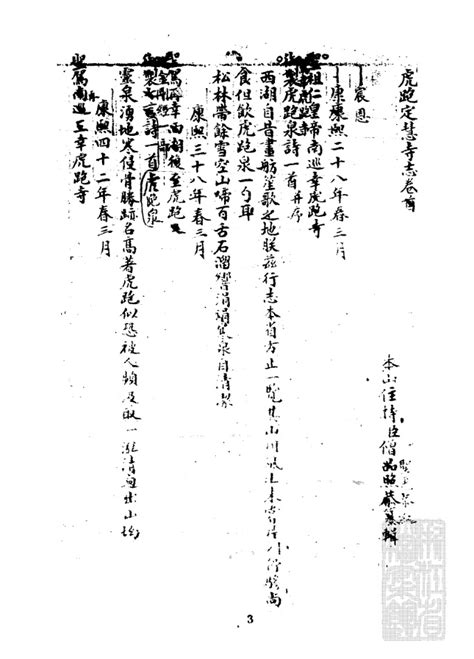 虎跑定慧寺志卷首
本山住持臣僧品照恭纂輯
宸恩
康熙二十八年春三月
聖祖仁皇帝南巡幸虎跑寺
製虎跑泉詩一首并序
西湖自昔畫舫笙歌之地朕茲行志在省方止一覽其山川風土未嘗
食但飲虎跑泉一勺耳
松林帶餘雪空山啼百舌石溜響涓涓泉自清潔
康熙三十八年春三月
駕再幸西湖復至虎跑
製言詩一首虎跑泉
靈泉湧地寒侵骨勝跡名高著虎跑似恐被人頻汲取一泓清出山坳
康熙四十二年春三月
聖駕南巡三幸虎跑寺
3